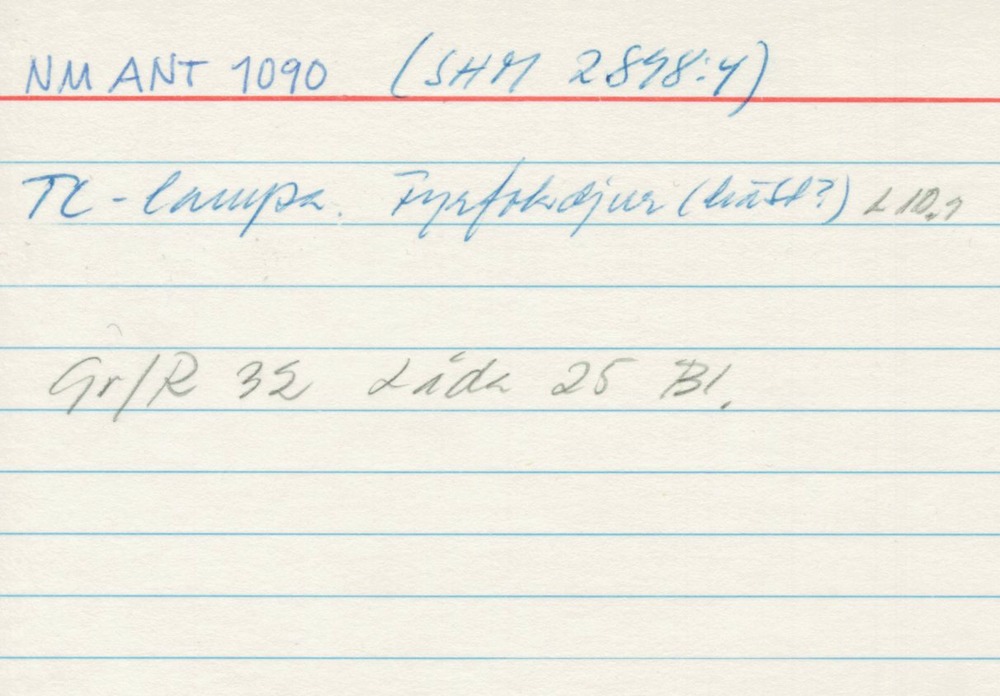 NM ANT 1090 (SHM 2898:4)
TC-lampa. Fyrfotadjur (häst?) L 10,9
Gr/R 32 Låda 25 Bl.